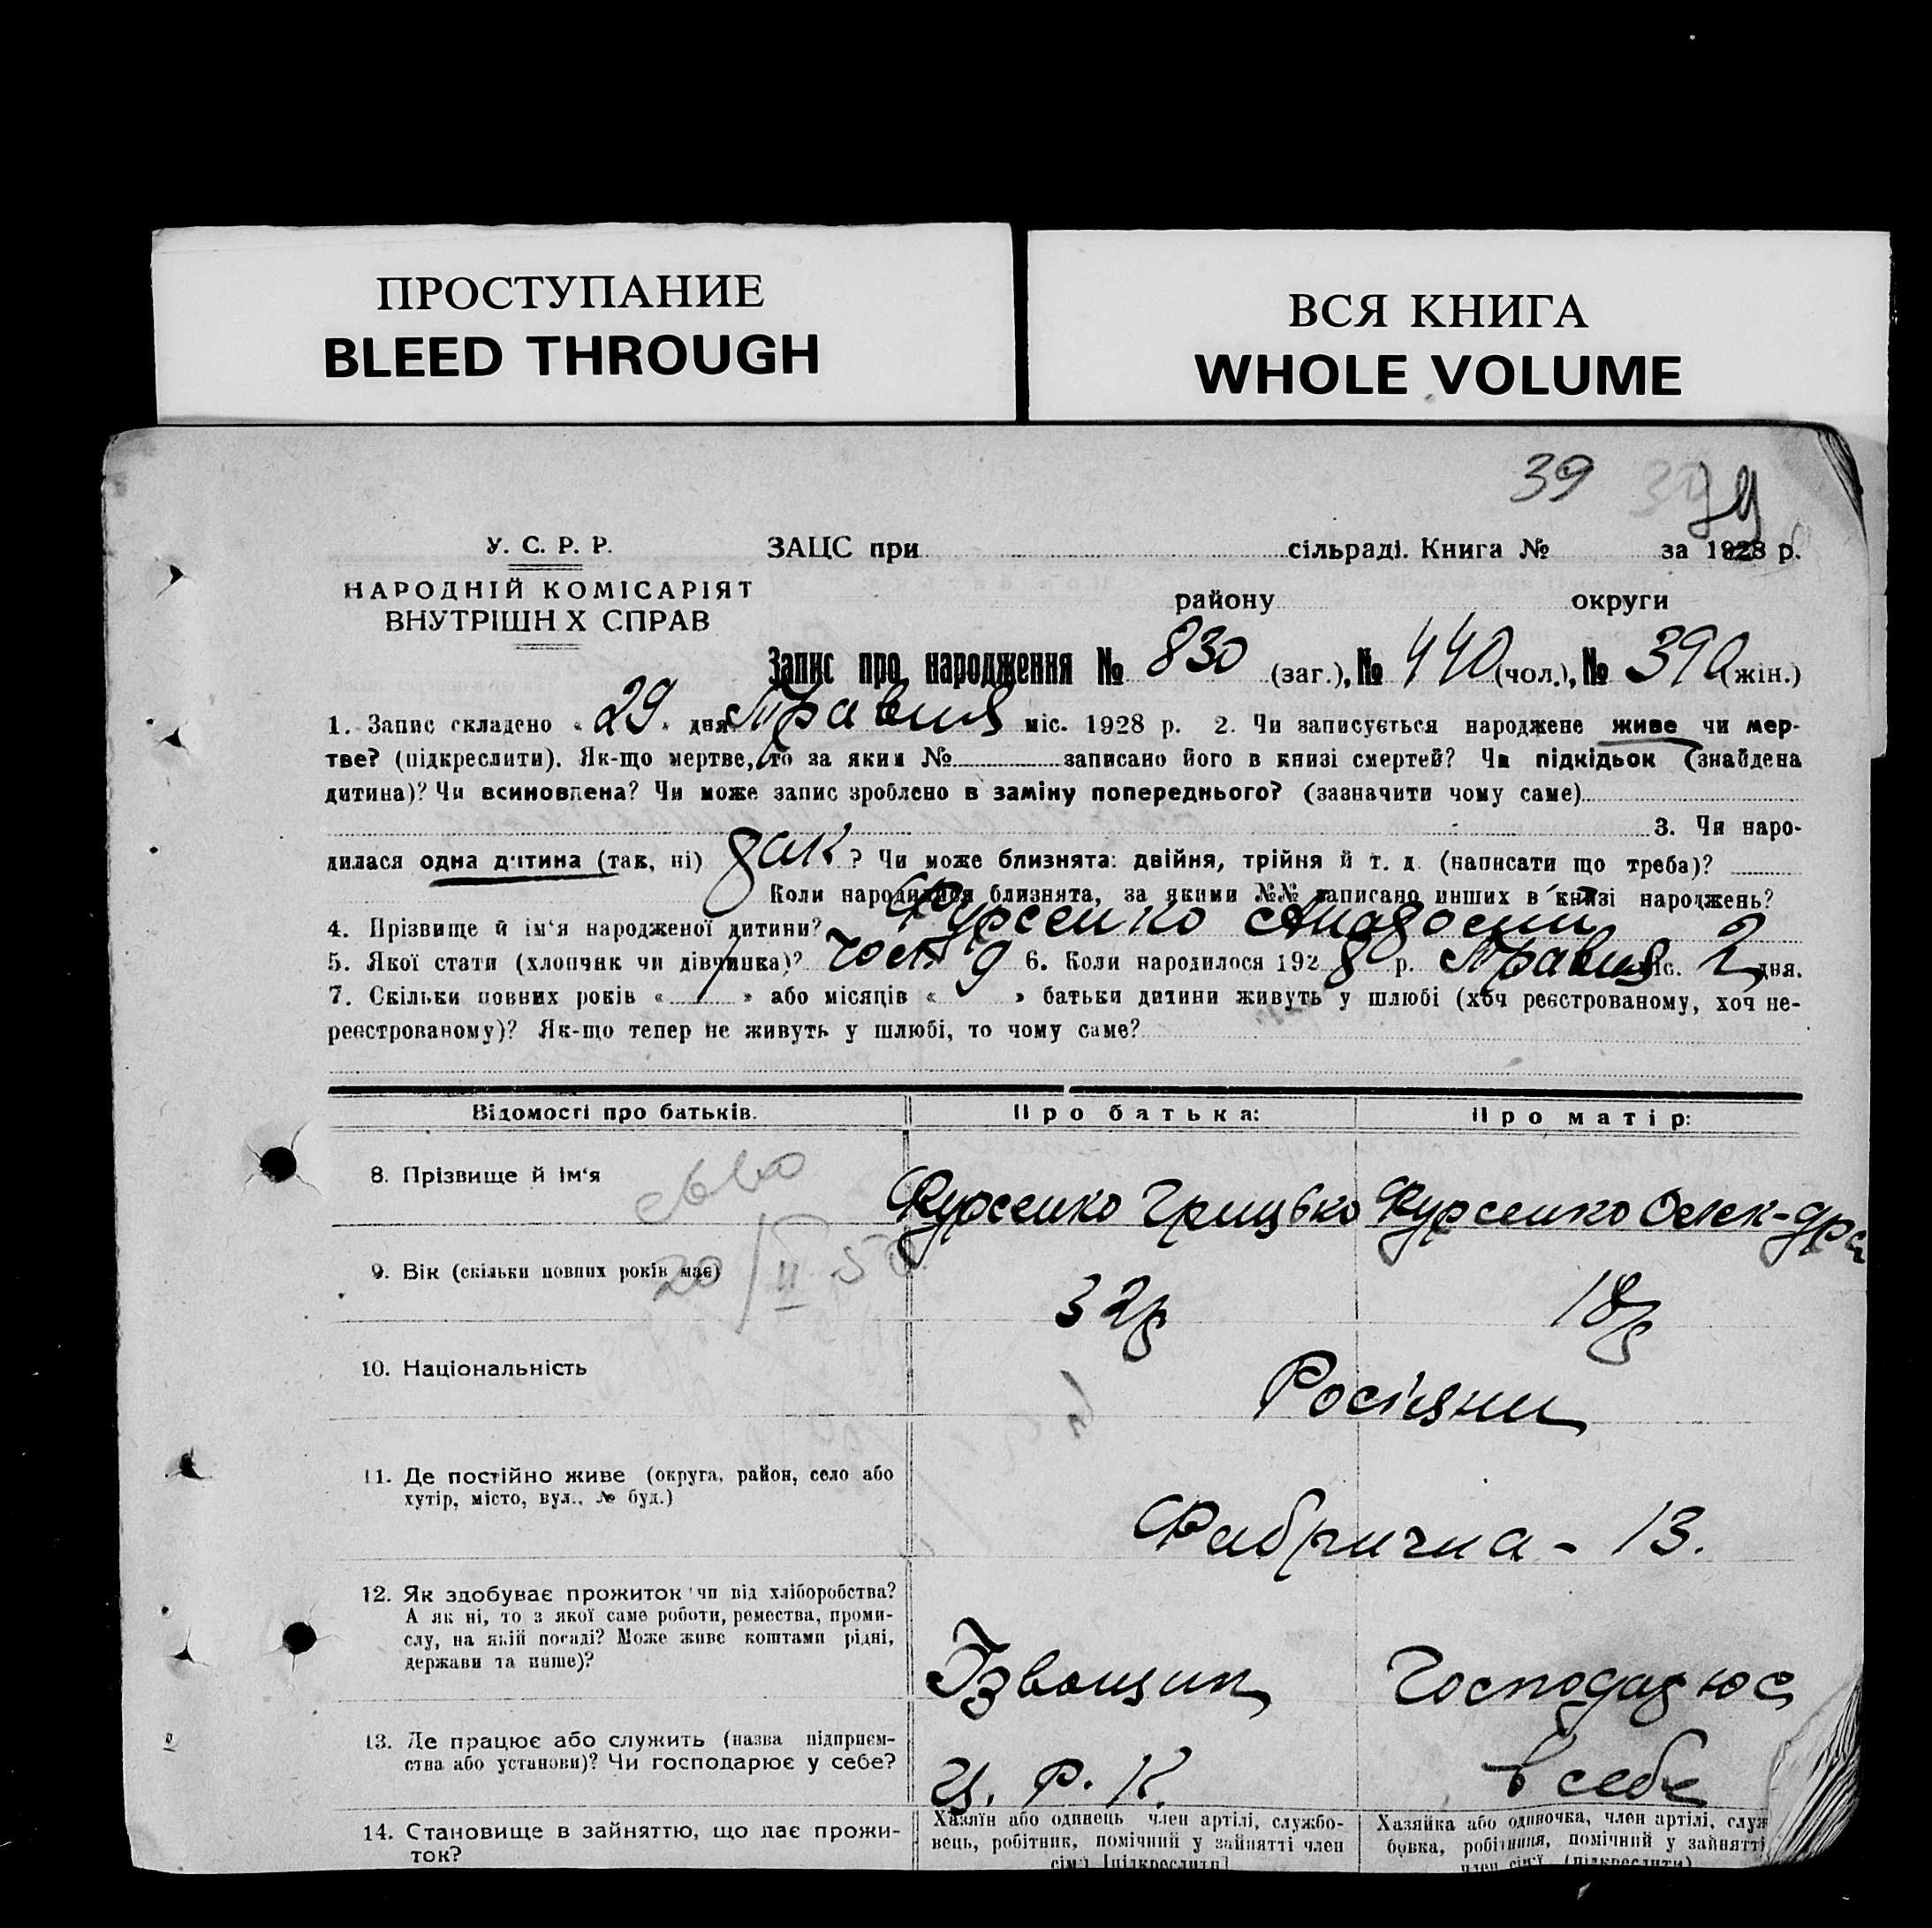 ПРОСТУПАНИЕ
BLEED THROUGH
ВСЯ КНИГА
WHOLE VOLUME
39 39
У. С. Р. Р.
НАРОДНІЙ КОМІСАРІЯТ
ВНУТРІШН Х СПРАВ
ЗАЦС при сільраді. Книга № за 1928 р.
району округи
Запис про народження № 830 (заг.), № 440 (чол.), № 390 (жін.)
1. Запис складено « 29 » дня Травня міс. 1928 р. 2. Чи записується народжене живе чи мер-
тве? (підкреслити). Як-що мертве, то за яким № записано його в книзі смертей? Чи підкідьок (знайдена
дитина)? Чи всиновлена? Чи може запис зроблено в заміну попереднього? (зазначити чому саме)
3. Чи наро-
дилася одна дитина (так, ні) так ? Чи може близнята: двійня, трійня й т. д. (написати що треба)?
Коли народилися близнята, за якими №№ записано инших в книзі народжень?
4. Прізвище й ім'я народженої дитини? Фурсенко
5. Якої стати (хлопчик чи дівчинка)? 6. Коли народилося 1928 р. Травня міс. 2 дня.
7. Скільки повних років « 1 » або місяців « » батьки дитини живуть у шлюбі (хоч реєстрованому, хоч не-
реєстрованому)? Як-що тепер не живуть у шлюбі, то чому саме?
Відомості про батьків. Про батька: Про матір:
8. Прізвище й ім'я Фурсенко Грицько Фурсенко Олек-дра
9. Вік (скільки повних років має) 32р 18р
20/II 50
10. Національність Росіяни
11. Де постійно живе (округа, район, село або
хутір, місто, вул., № буд.)
Фабрична - 13.
12. Як здобуває прожиток чи від хліборобства?
А як ні, то з якої саме роботи, ремества, проми-
слу, на якій посаді? Може живе коштами рідні,
держави та инше)?
Ізвощик Господарює
13. Де працює або служить (назва підприєм-
ства або установи)? Чи господарює у себе?
Ц. Р. К. в себе
14. Становище в зайняттю, що дає прожи-
ток?
Хазяїн або одинець член артілі, службо-
вець, робітник, помічний у зайнятті член
сім'ї [підкреслити]
Хазяйка або одиночка, член артілі, служ
бовка, робітниця, помічний у зайнятті
член сім'ї (підкреслити)